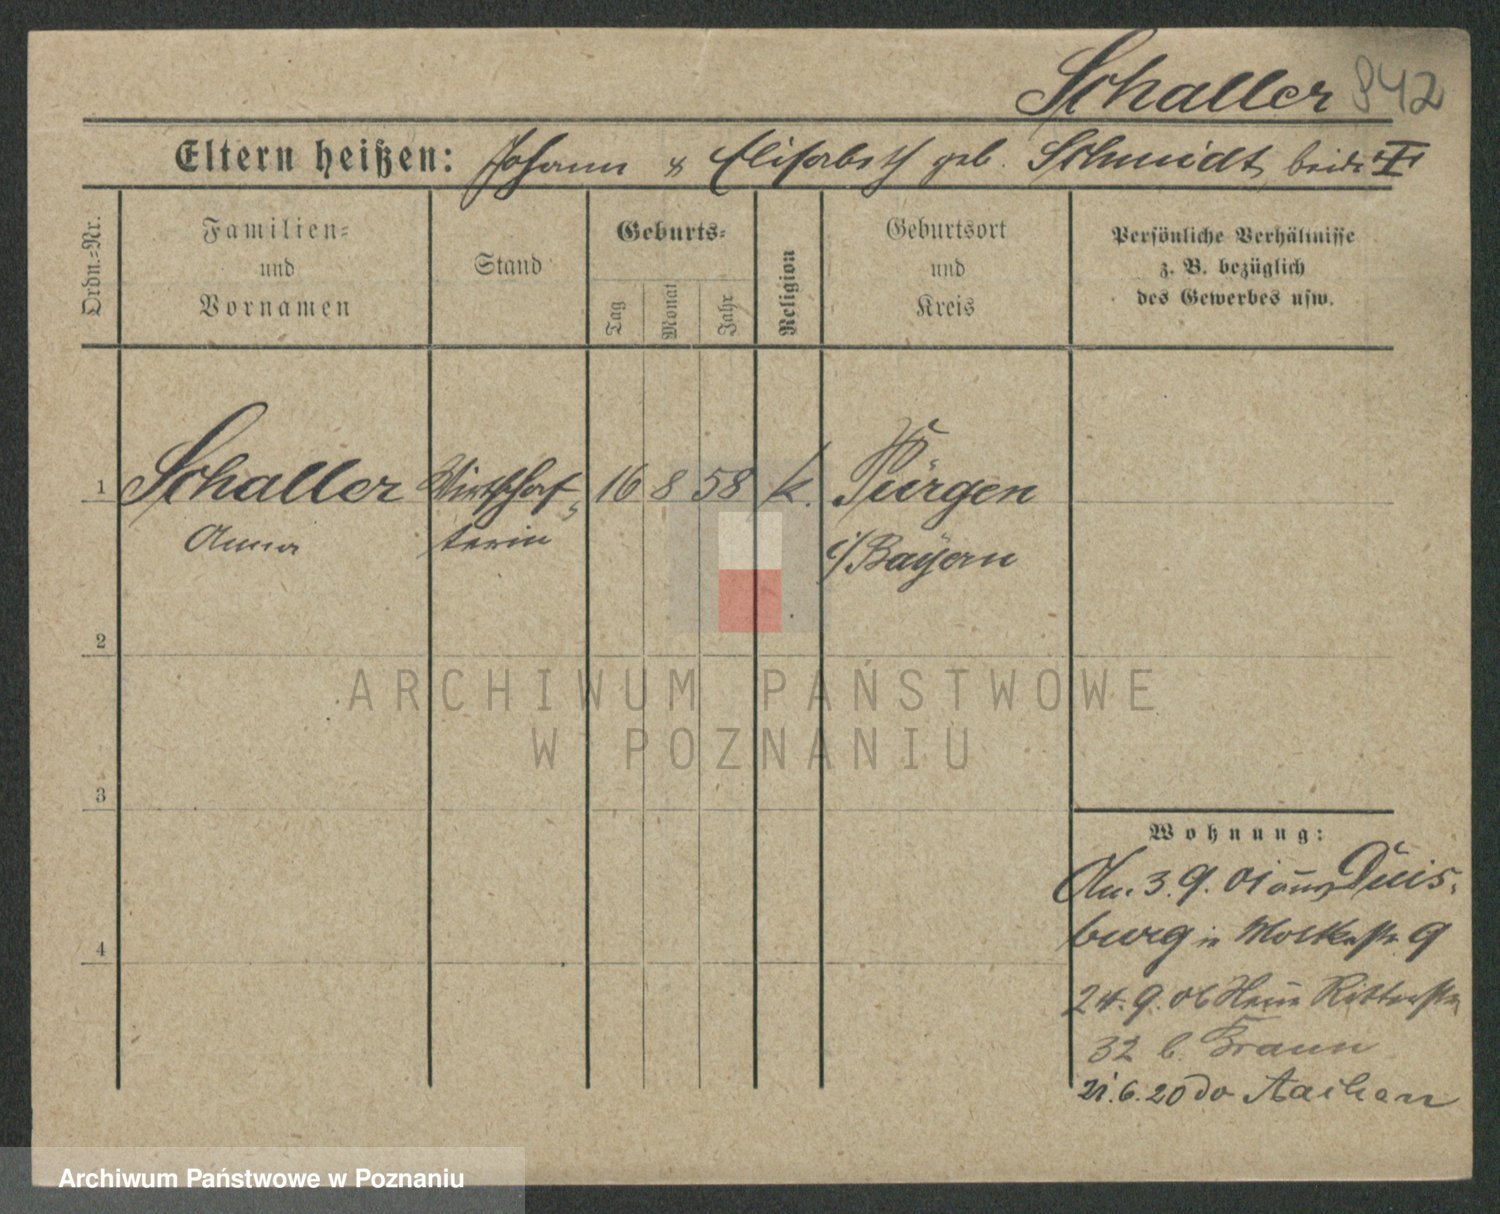 Schaller 942
Eltern heißen: Johann & Elisabeth geb. Schmidt, beide
Ordn.-Nr.
Familien-
und
Vornamen
Stand
Geburts-
Tag
Monat
Jahr
Religion
Geburtsort
und
Kreis
Persönliche Verhältnisse
z. B. bezüglich
des Gewerbes usw.
1 Schaller Wirtschaf- 16 8 58 k. Pürgen
Anna terin i/Bayern
2
3
4
Wohnung:
An. 3.9.01 aus Duis-
burg in Moltkestr 9
24.9.06 Neue Ritterstr
32 b.
21.6.20 do Aachen
ARCHIWUM PAŃSTWOWE
W POZNANIU
Archiwum Państwowe w Poznaniu